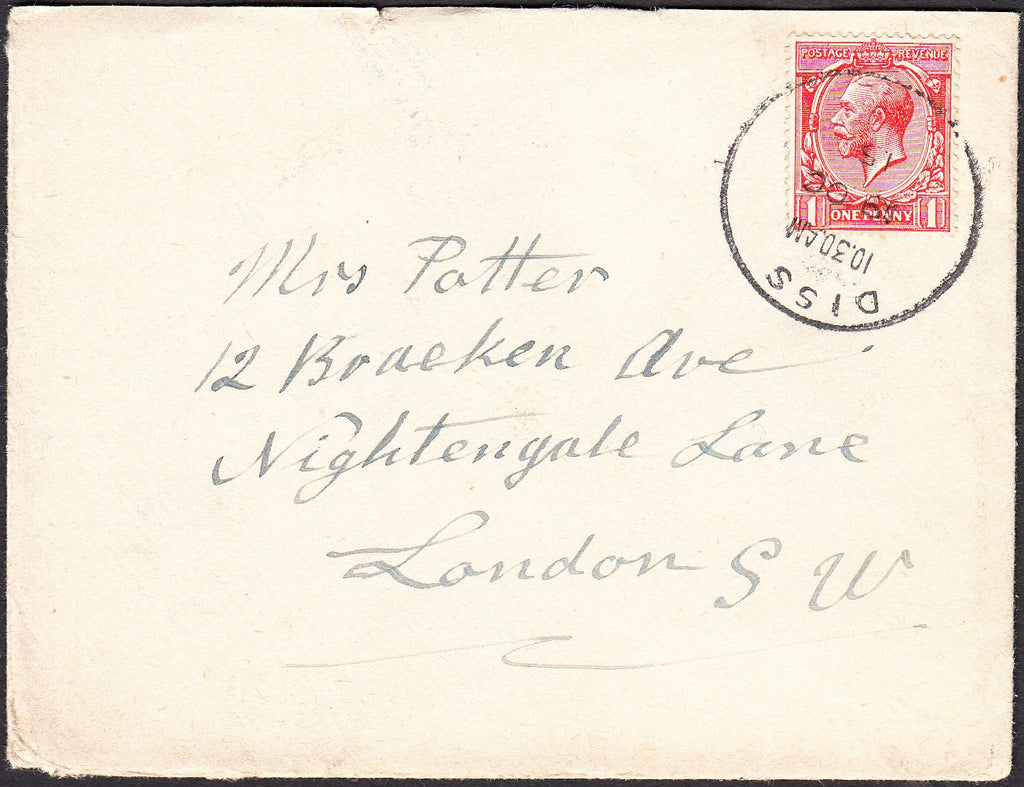 POSTAGE REVENUE
1 ONE PENNY 1
15
19 OC
10.30 AM
DISS
Mrs Potter
12 Broacken Ave
Nightengale Lane
London S W